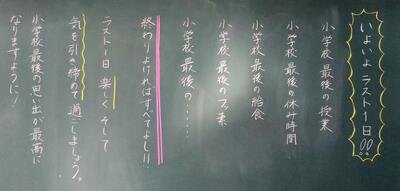 いよいよ ラスト1日!!
小学校 最後の 授業
小学校 最後の 休み時間
小学校 最後の 給食
小学校 最後の 下校
小学校 最後の……
終わりよければすべてよし!!
ラスト1日 楽しく そして
気を引き締めて 過ごしましょう。
小学校最後の思い出が最高に
なりますように!